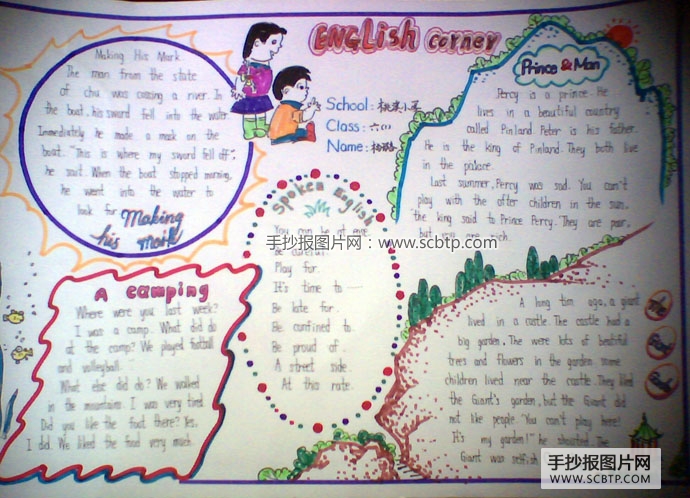 ENGLish corner
School: 
Class: 六(1)
Name: 
Making His Mark
The man from the state
of chu was cossing a river. In
the boat, his sword fell into the water.
Immediately he made a mark on the
boat. "This is where my sword fell off",
he sait. When the boat stopped moning,
he went into the water to
look for
Making
his mark
Prince & Man
Percy is a prince. He
lives in a beautiful country
called Pinland. Peter is his father.
He is the king of Pinland. They both live
in the palace.
Last summer, Percy was sad. You can't
play with the other children in the sun,
the king said to Prince Percy. They are poor,
but we are rich.
Spoken English
You can be at ease
Be careful.
Play for.
It's time to
Be late for.
Be confined to.
Be proud of.
A street side.
At this rate.
手抄报图片网：www.scbtp.com
A camping
Where were you last week?
I was a camp. What did do
at the camp? We played football
and volleyball.
What else did do? We walked
in the mountains. I was very tired.
Did you like the foot there? Yes,
I did. We liked the food very much.
A long tim ago, a giant
lived in a castle. The castle had a
big garden, The were lots of beatiful
trees and flowers in the garden some
children lived near the castle. They liked
the Giant's garden, but the Giant did
not like people "You can't play here!
It's my garden!" he shoutted. The
Giant was selfish
The
手抄报图片网
WWW.SCBTP.COM